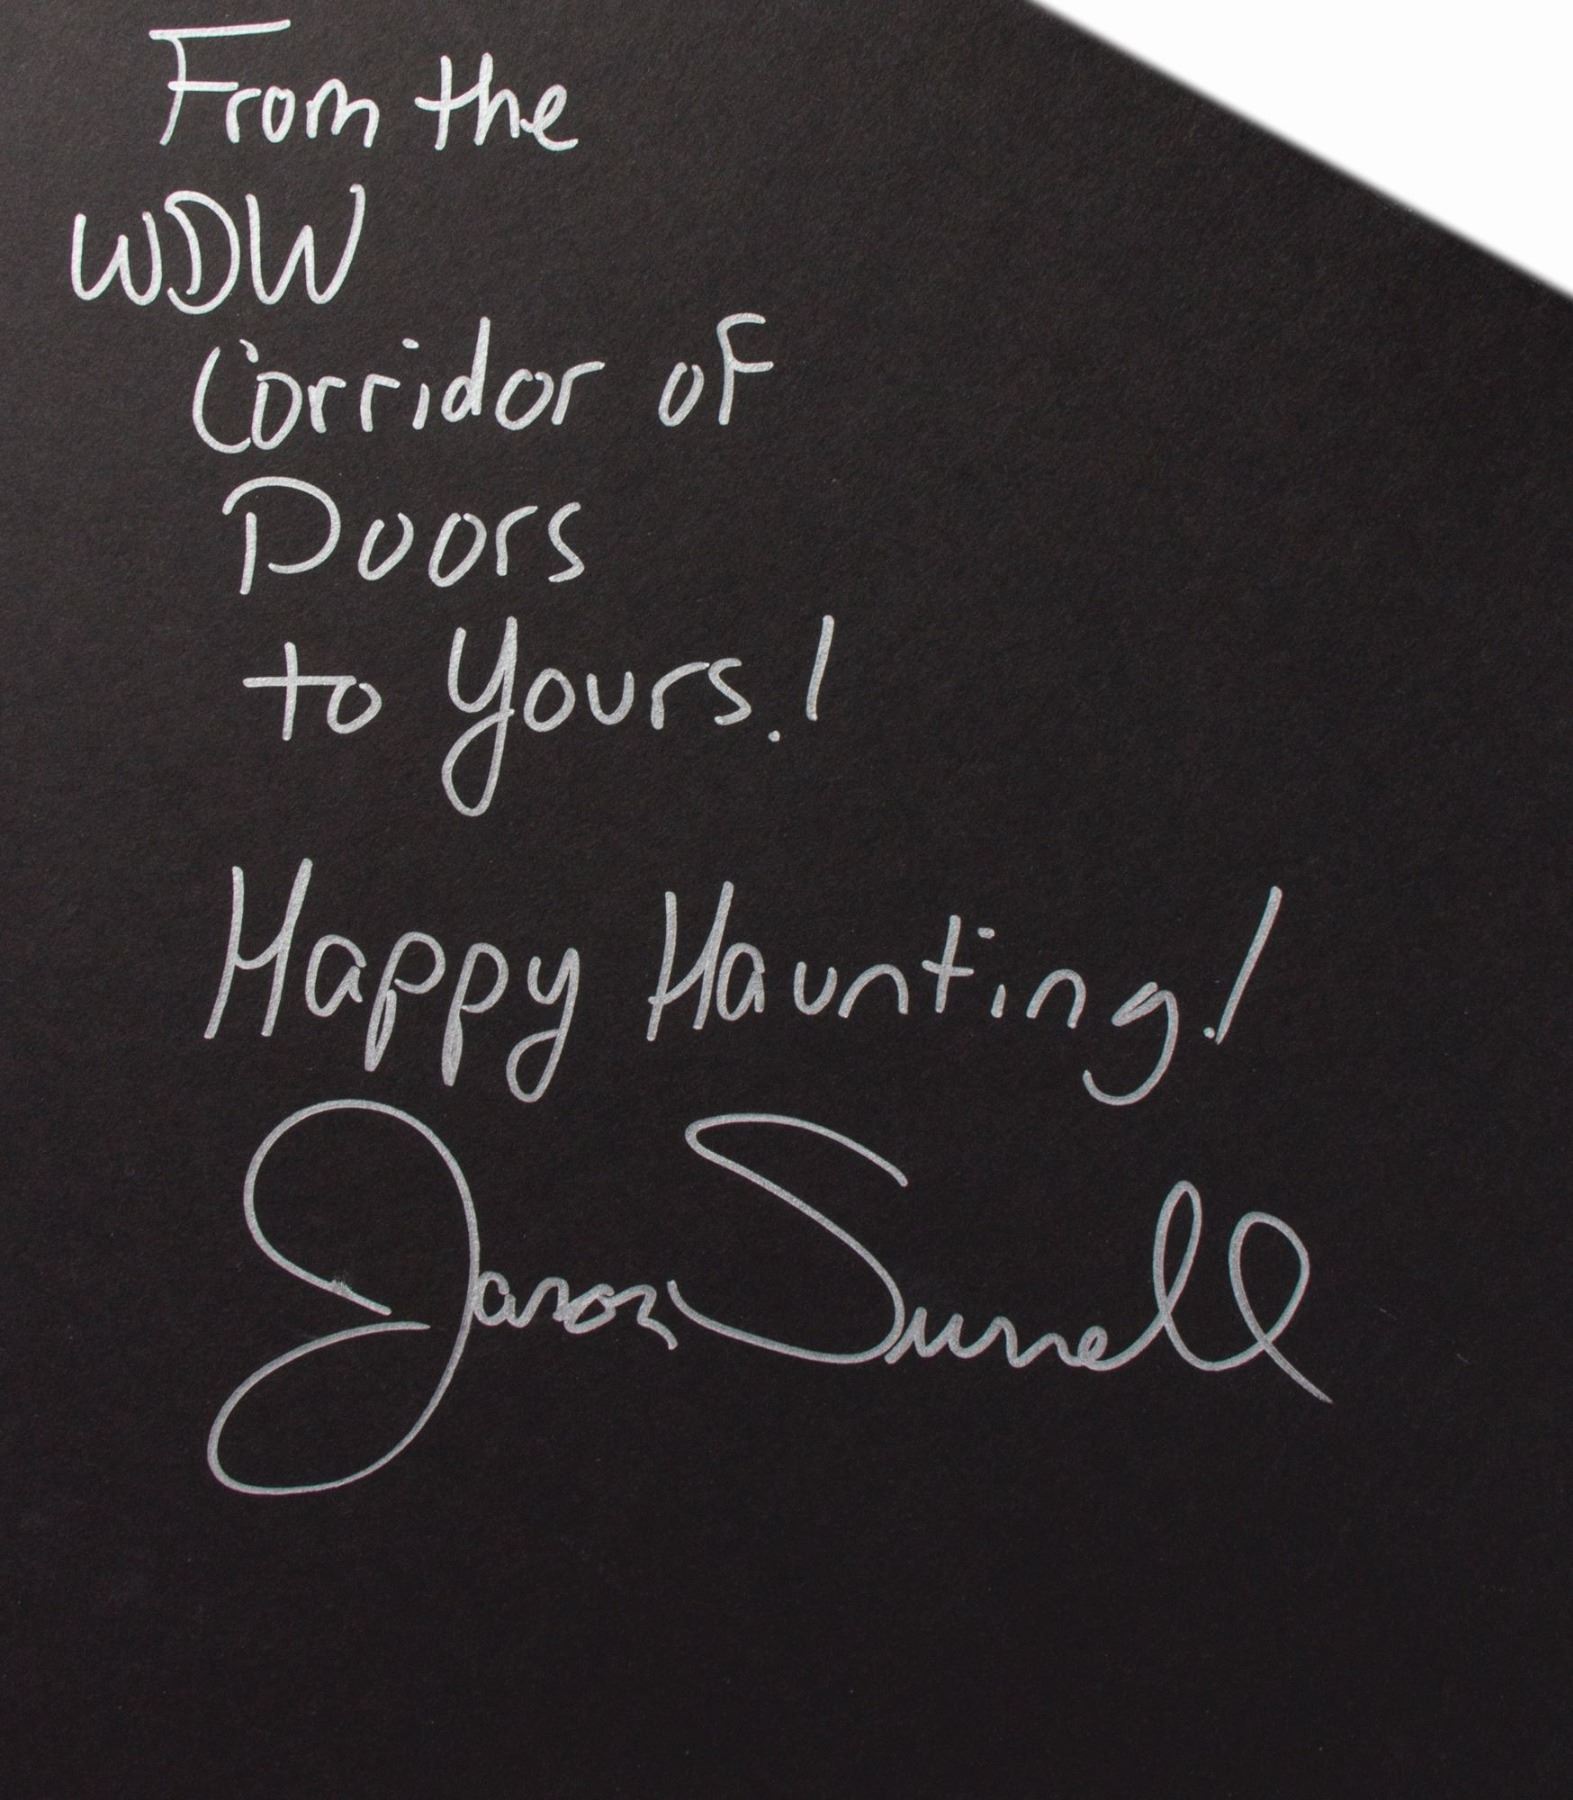 From the
WDW
Corridor of
Doors
to Yours!
Happy Haunting!
Jason Surrell